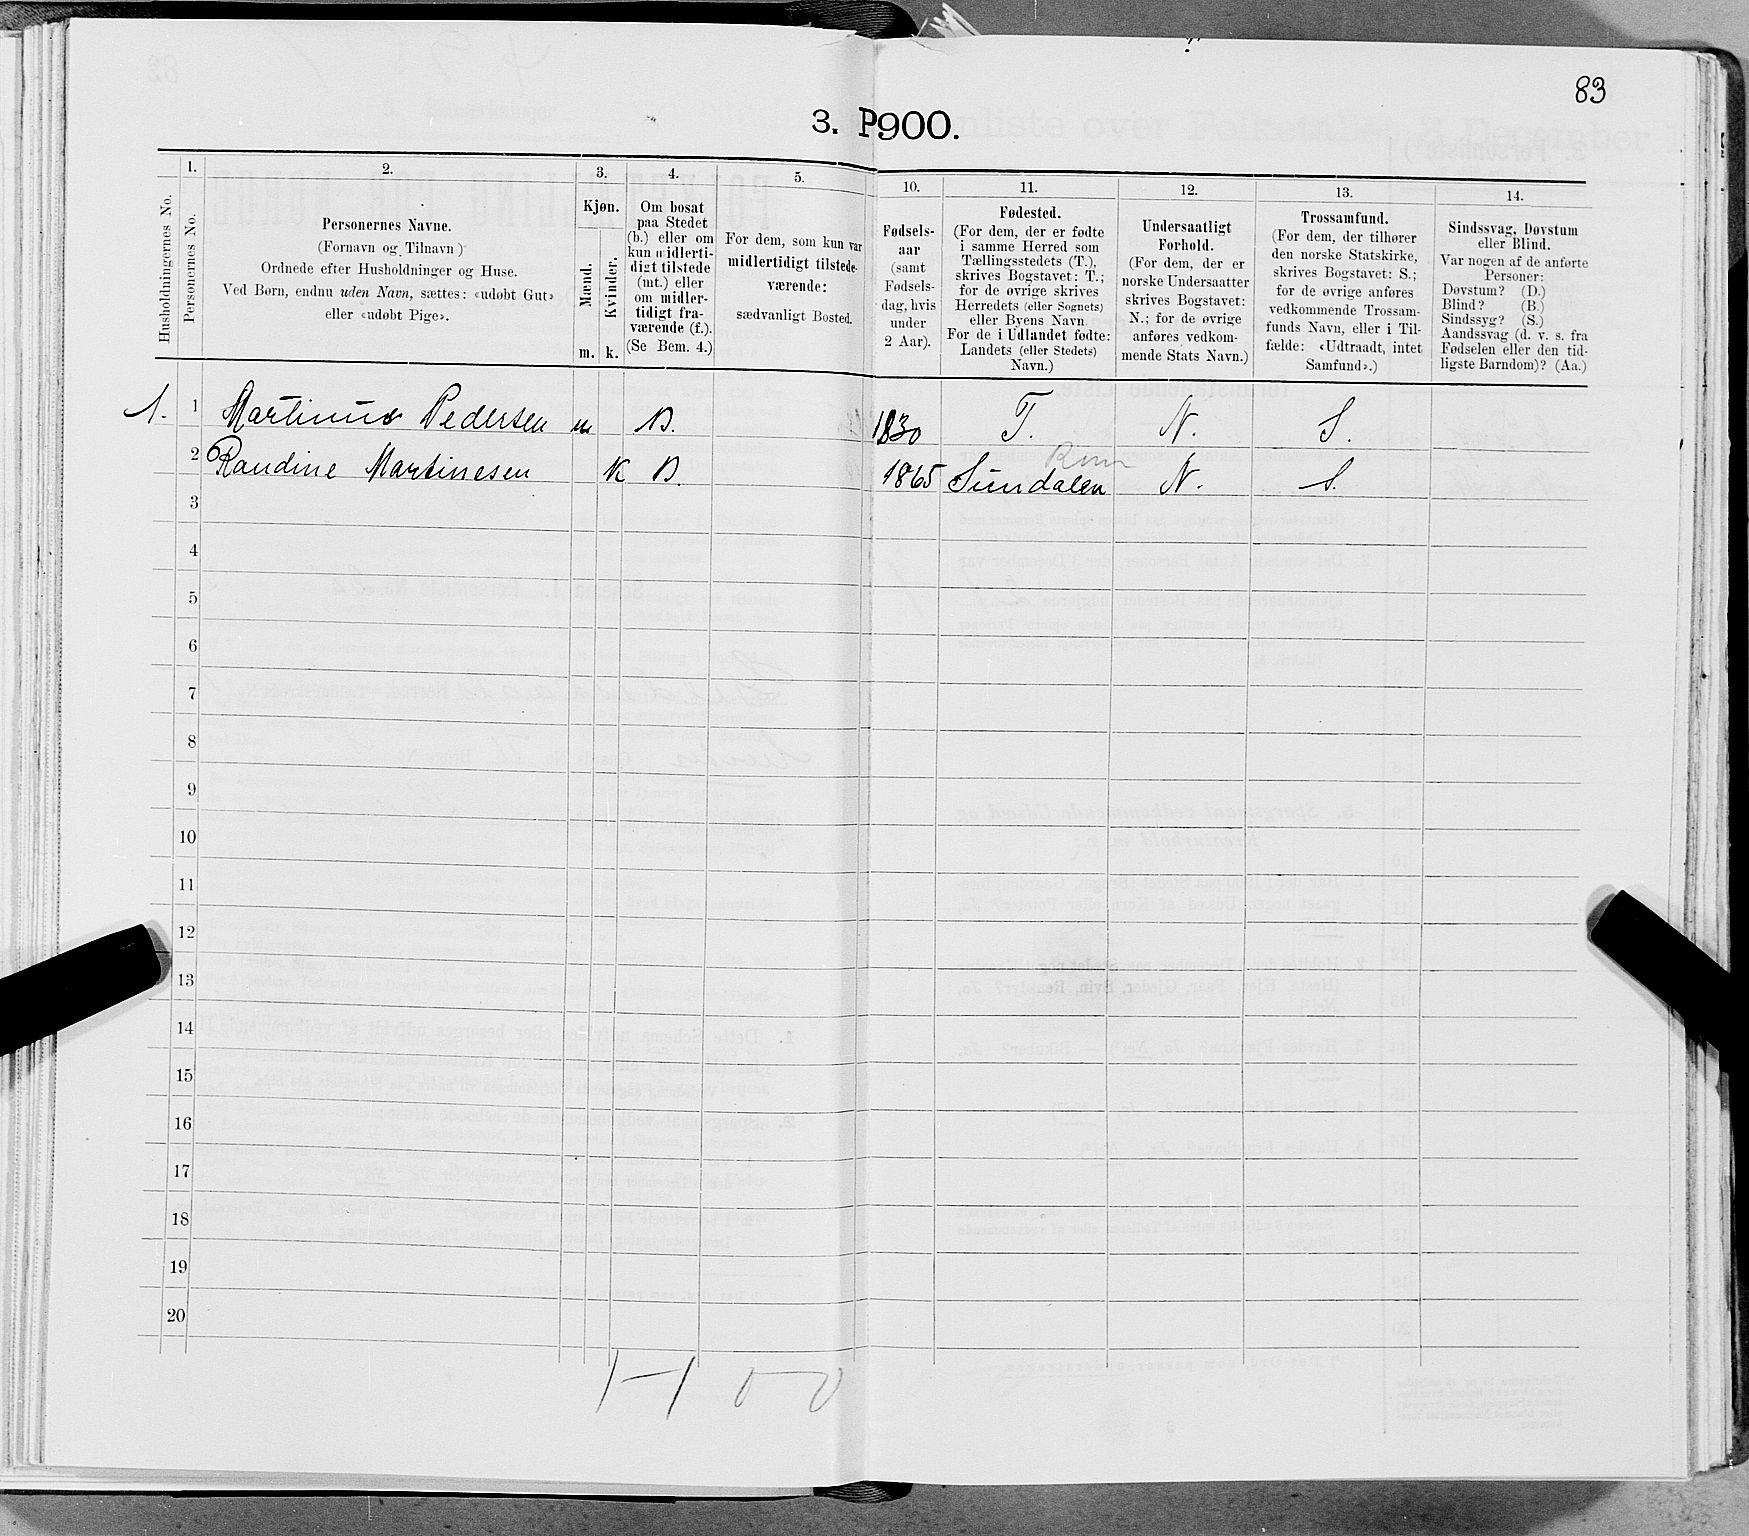 83
3. P900.
Husholdningernes No.
1.
Personernes No.
2.
Personernes Navne.
(Fornavn og Tilnavn)
Ordnede efter Husholdninger og Huse.
Ved Børn, endnu uden Navn, sættes: «udøbt Gut»
eller «udøbt Pige».
3.
Kjøn.
Mænd.
m.
Kvinder.
k.
4.
Om bosat
paa Stedet
(b.) eller om
kun midlerti-
digt tilstede
(mt.) eller
om midler-
tidigt fra-
værende (f.).
(Se Bem. 4.)
5.
For dem, som kun var
midlertidigt tilstede-
værende:
sædvanligt Bosted.
10.
Fødsels-
aar
(samt
Fødsels-
dag, hvis
under
2 Aar).
11.
Fødested.
(For dem, der er fødte
i samme Herred som
Tællingsstedets (T.),
skrives Bogstavet: T.;
for de øvrige skrives
Herredets (eller Sognets)
eller Byens Navn
For de i Udlandet fødte:
Landets (eller Stedets)
Navn.)
12.
Undersaatligt
Forhold.
(For dem, der er
norske Undersaatter
skrives Bogstavet:
N.; for de øvrige
anføres vedkom-
mende Stats Navn.)
13.
Trossamfund.
(For dem, der tilhører
den norske Statskirke,
skrives Bogstavet: S.;
for de øvrige anføres
vedkommende Trossam-
funds Navn, eller i Til-
fælde: «Udtraadt, intet
Samfund».)
14.
Sindssvag, Døvstum
eller Blind.
Var nogen af de anførte
Personer:
Døvstum? (D.)
Blind? (B.)
Sindssyg? (S.)
Aandssvag (d. v. s. fra
Fødselen eller den tid-
ligste Barndom)? (Aa.)
1. 1 Martinus Pedersen m B. 1830 T. N. S.
2 Randine Martinesen K B. 1865 Sundalen N. S.
3
4
5
6
7
8
9
10
11
12
13
14
15
16
17
18
19
20
1-1 0-0